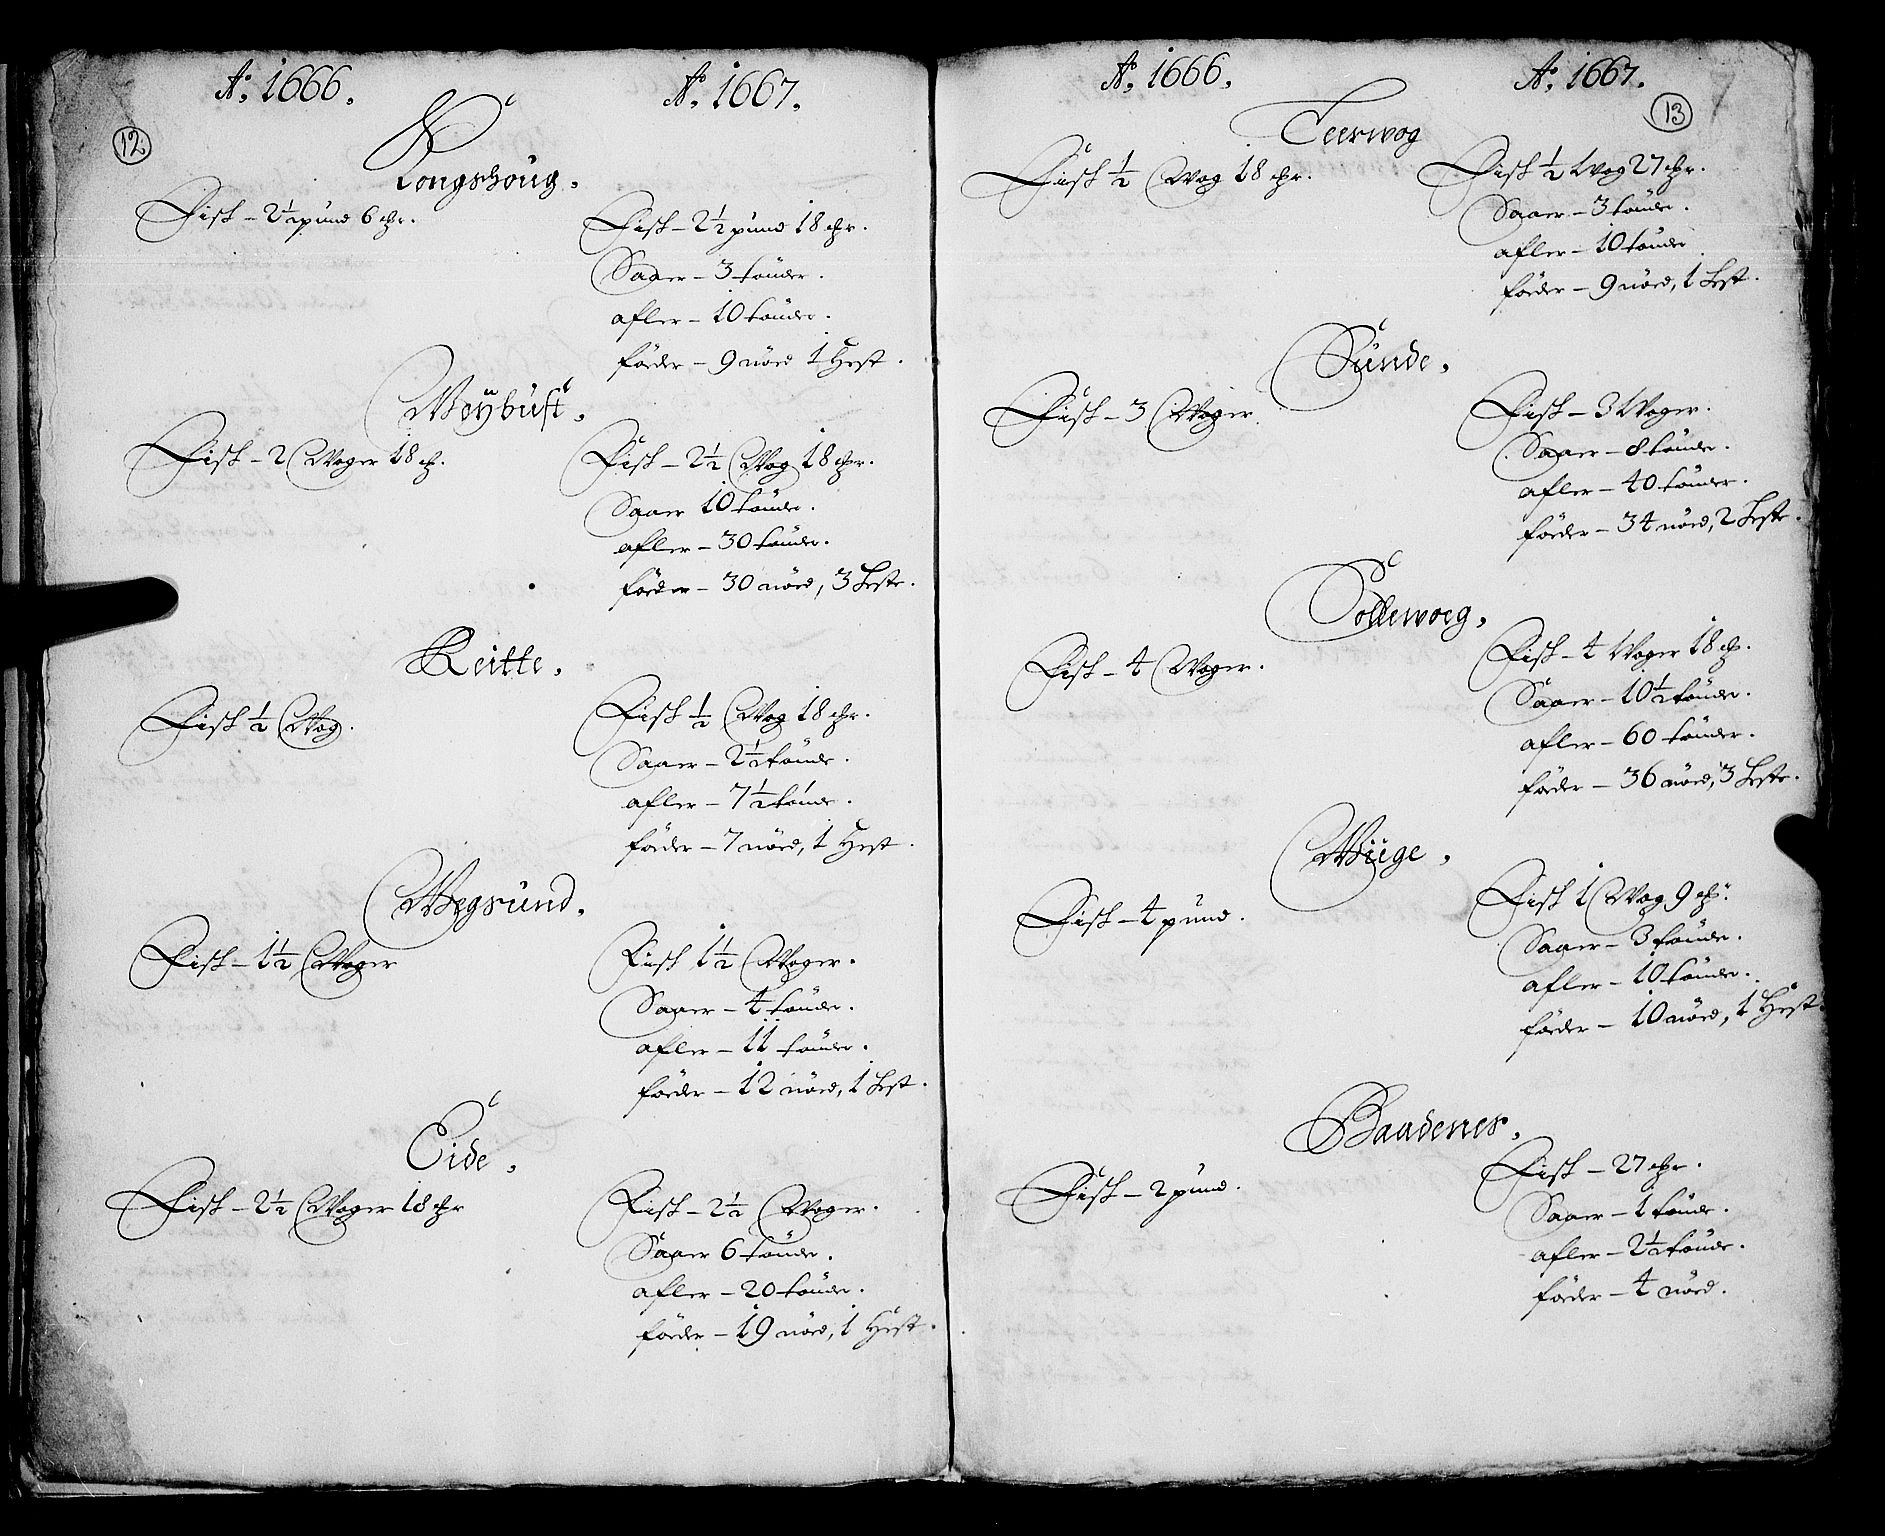 Ao. 1666. Ao. 1667.
12
Kongshoüg.
Fisk – 2½ pund 6 ℔r. Fisk – 2½ pund 18 ℔r.
Saaer – 3 tønder.
afler – 10 tønder.
føder – 9 nøed 1 Hest.
Weÿbüst.
Fisk – 2 Woger 18 ℔. Fisk – 2½ Wog 18 ℔r.
Saaer 10 tønder.
afler – 30 tønder.
føeder – 30 nøed, 3 Heste.
Reitte.
Fisk ½ Wog. Fisk ½ Wog 18 ℔r.
Saaer – 2½ tønde.
afler – 7½ tønde.
føder – 7 nøed, 1 Hest.
Wegsünd.
Fisk – 1½ Woger Fisk 1½ Woger.
Saaer – 4 tønder.
afler – 11 tønder.
føeder – 12 nøed, 1 Hest.
Eide.
Fisk – 2½ Woger 18 ℔r Fisk – 2½ Woger.
Saaer 6 tønder.
afler – 20 tønder.
føeder – 19 nøed, 1 Hest.
Ao. 1666. Ao. 1667.
13
Teerwog
Fisk ½ Wog 18 ℔r. Fisk ½ Wog 27 ℔r.
Saaer – 3 tønder.
afler – 10 tønder
føder – 9 nøed, 1 Hest.
Sünde.
Fisk – 3 Woger. Fisk – 3 Woger.
Saaer – 8 tønder.
afler – 40 tønder.
føeder – 34 nøed, 2 Heste.
Sollewoeg.
Fisk – 4 Woger. Fisk – 4 Woger 18 ℔.
Saaer – 10½ tønde.
afler – 60 tønder.
føder – 36 nøed, 3 Heste.
Wiige.
Fisk – 4 pund. Fisk 1 Wog 9 ℔r
Saaer – 3 tønde.
afler – 10 tønder.
føeder – 10 nøed, 1 Hest.
Baadenes.
Fisk – 2 pund. Fisk – 27 ℔r.
Saaer – 1 tønde.
afler – 2½ tønde.
føeder – 4 nøed.